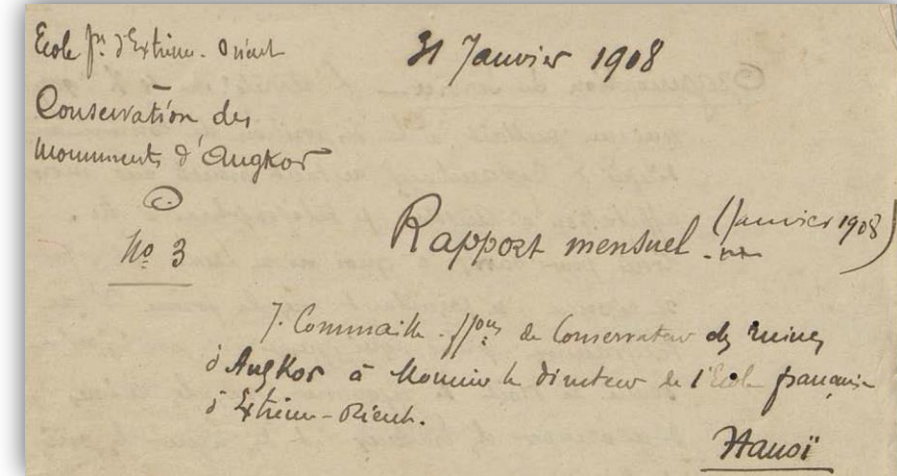 Ecole fse d'Extrême-Orient
31 Janvier 1908
Conservation des
Monuments d'Angkor
No 3
Rapport mensuel (Janvier 1908)
J. Commaille ffons de Conservateur des ruines
d'Angkor à Monsieur le Directeur de l'Ecole française
d'Extrême-Orient.
Hanoï